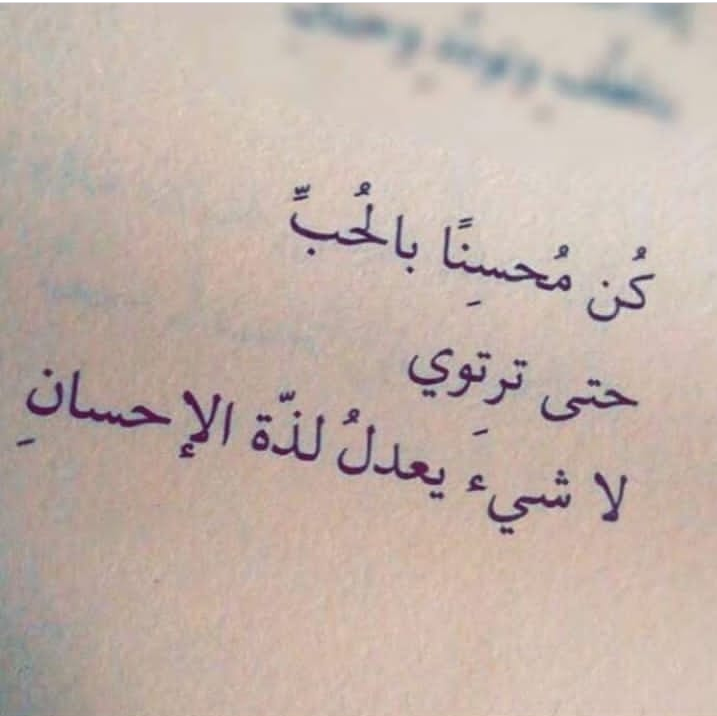 كُن مُحسِنًا بالحُبِّ
حتى ترتِوي
لا شيء يعدلُ لذّة الإحسانِ